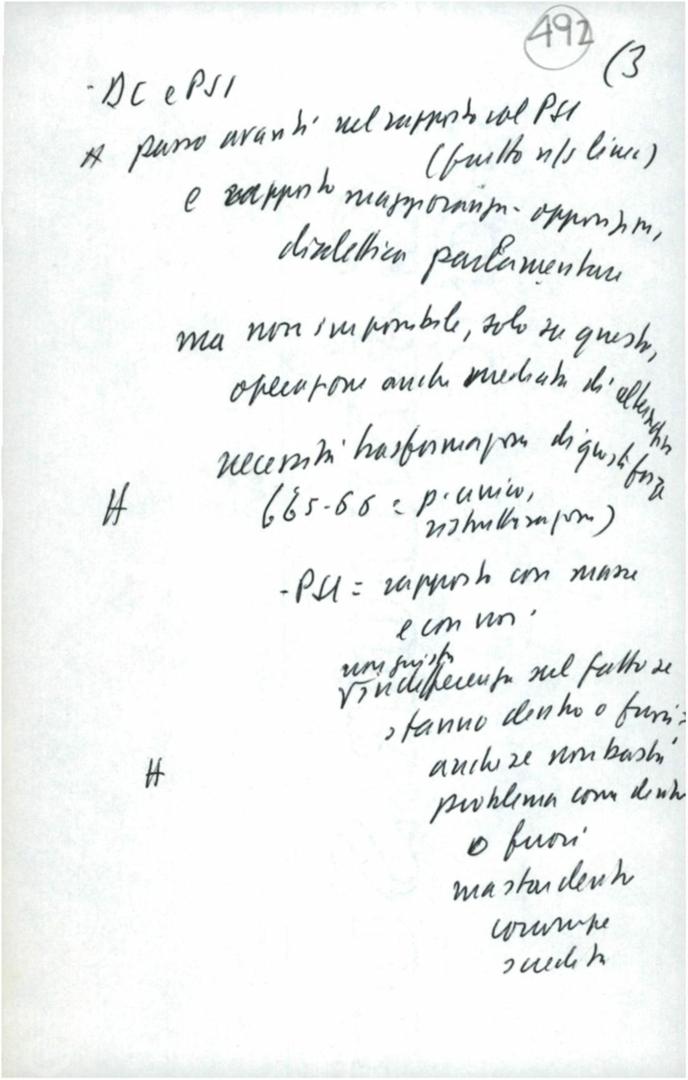 492
(3
- DC e PSI
passo avanti nel rapporto col PSI
(frutto n/s linea)
e rapporto maggioranza - opposizione,
dialettica parlamentare
ma non impossibile, solo su questo,
operazione anche mediata di alternativa
necessità trasformazione di questa forza
(65-66 = p. unico,
ristrutturazione)
- PSI = rapporto con masse
e con noi
non giusta
indifferenza sul fatto se
stanno dentro o fuori =
anche se non basta
problema come dentro
o fuori
ma star dentro
corrompe